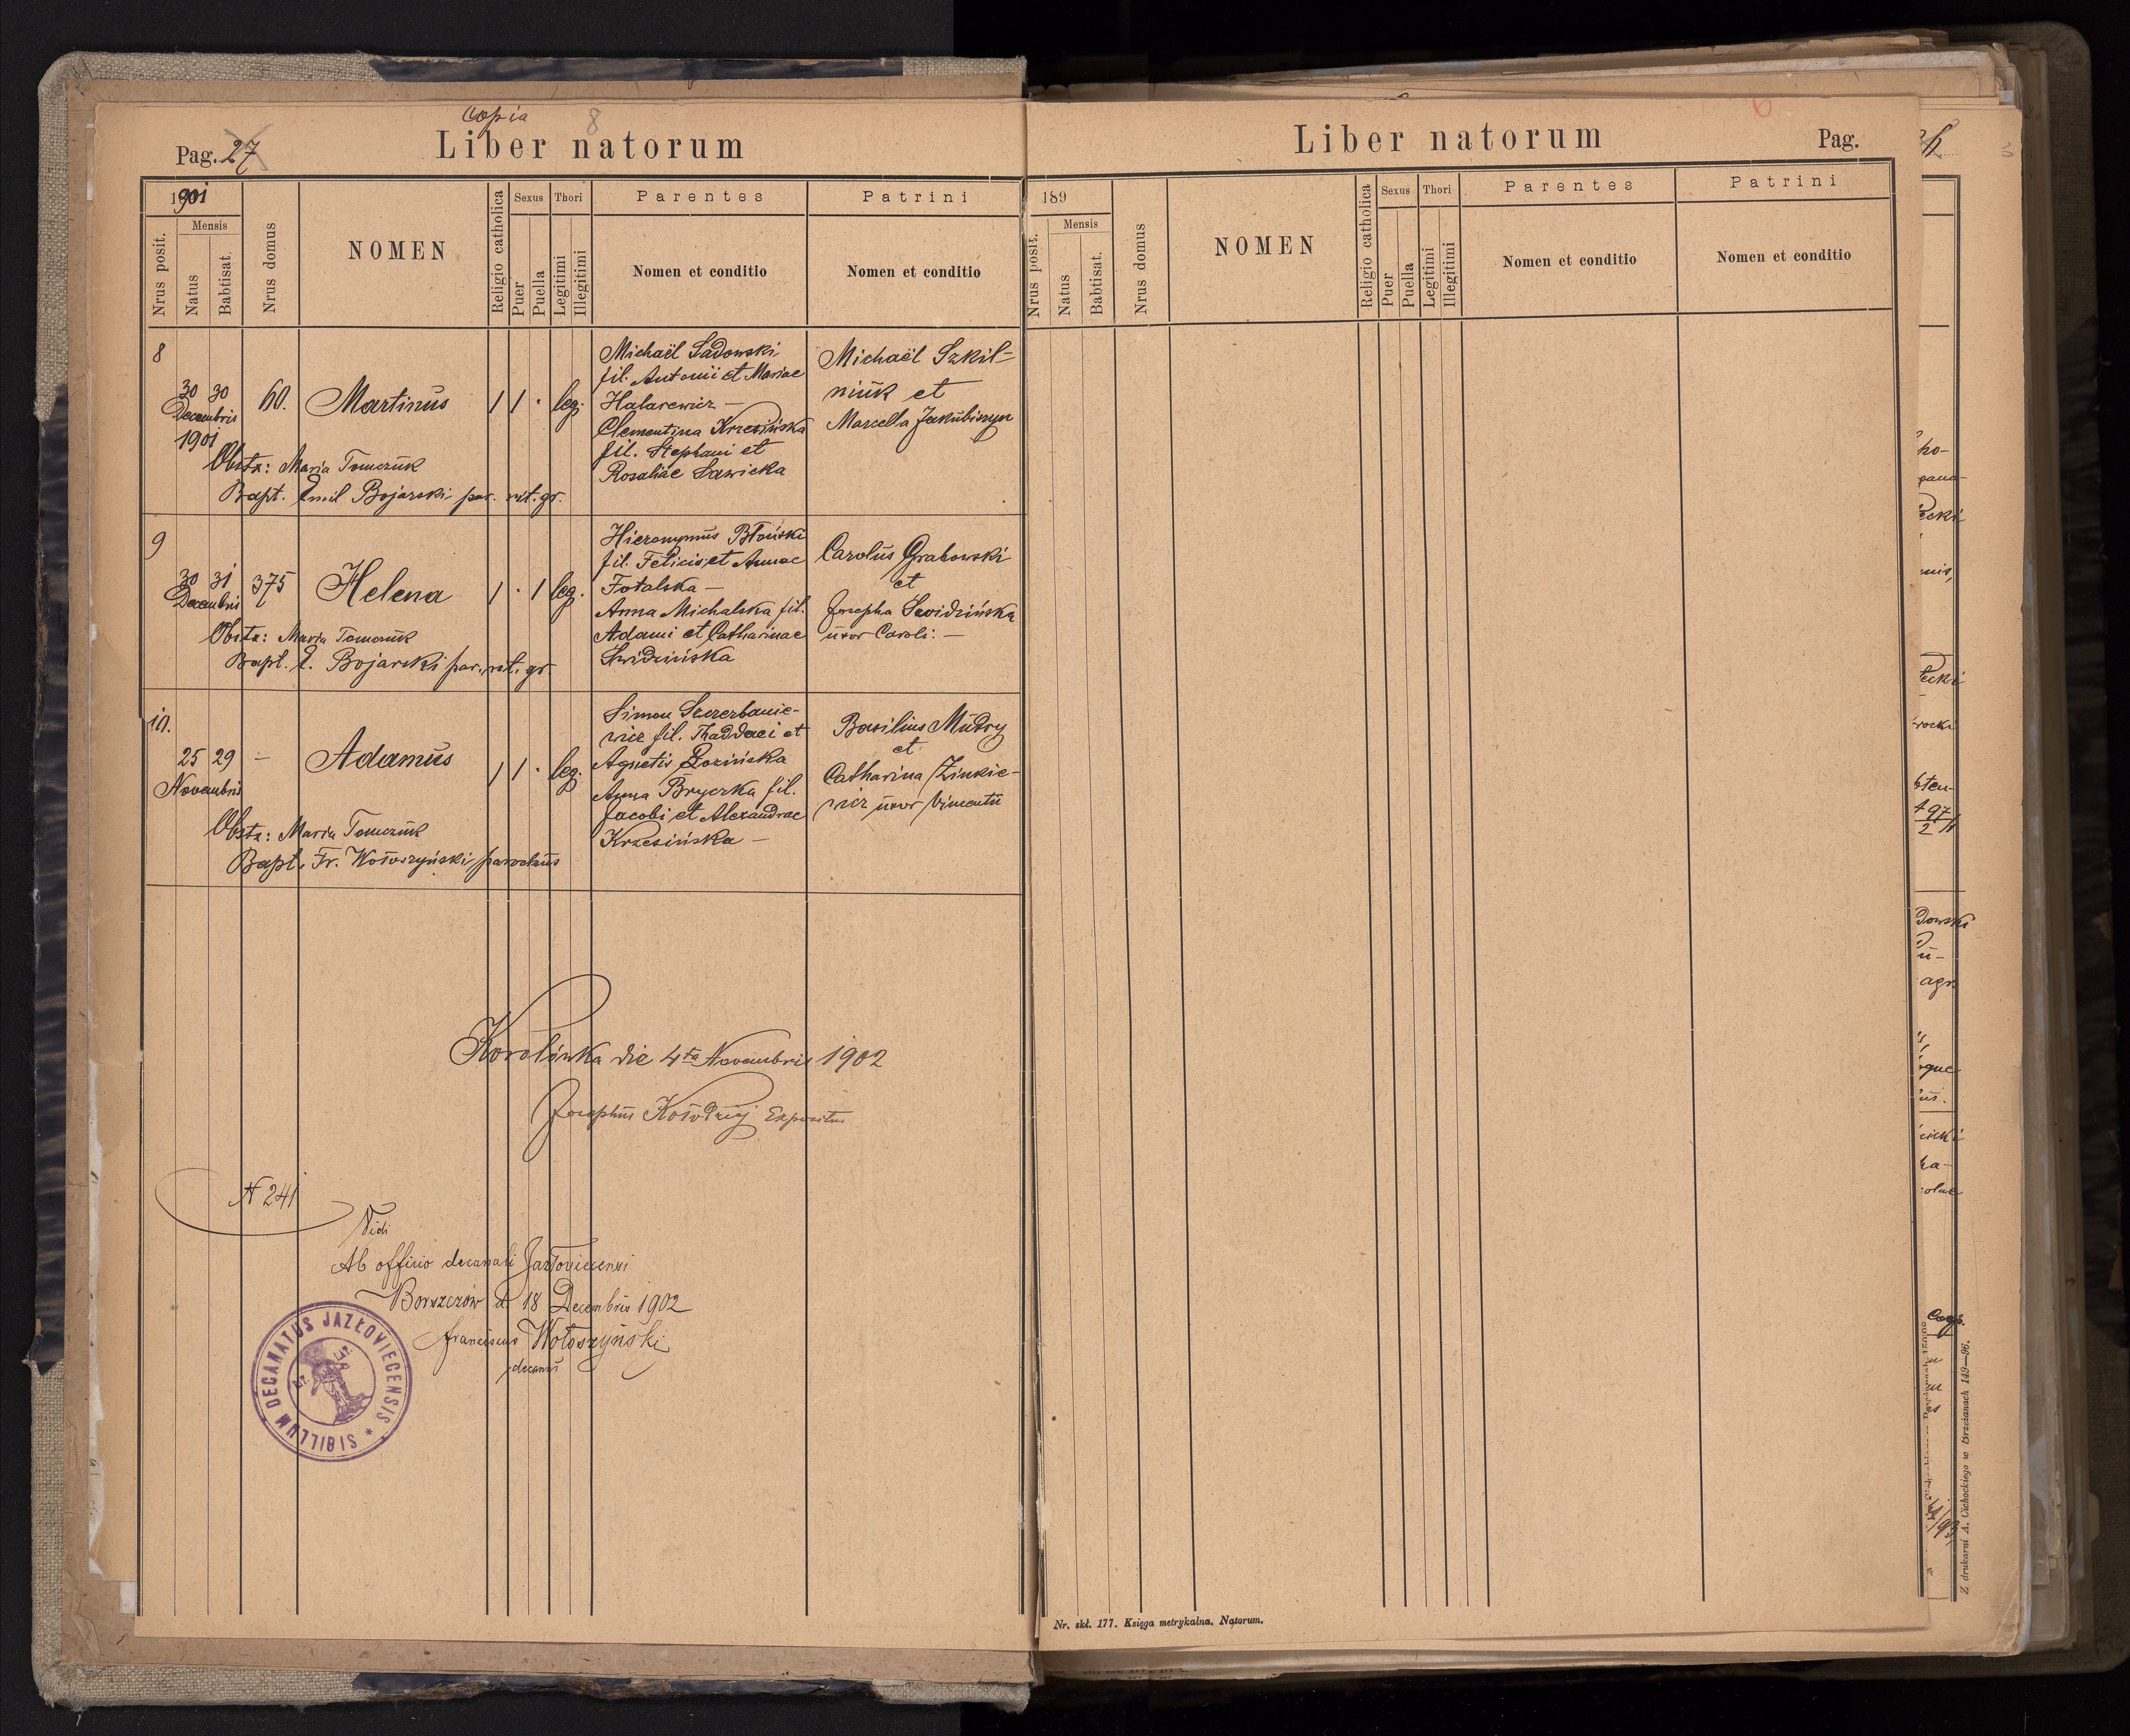 Copia
8
Pag. 27
Liber natorum
1901
Nrus posit.
Mensis
Natus
Babtisat.
Nrus domus
NOMEN
Religio catholica
Sexus
Puer
Puella
Thori
Legitimi
Illegitimi
Parentes
Nomen et conditio
Patrini
Nomen et conditio
8
30 30
Decembris
1901
60.
Martinus
1 1 · leg.
Michaël Sadowski
fil. Antonii et Mariae
Halarewicz —
Clementina Krzesińska
fil. Stephani et
Rosaliae Sawicka
Michaël Szkil-
niuk et
Marcella Jakubiszyn
Obstx: Maria Tomczuk
Bapt. Emil Bojarski par. rit. gr.
9
30 31
Decembris
375
Helena
1 · 1 leg.
Hieronymus Błoński
fil. Felicis et Annae
Fotalska —
Anna Michalska fil.
Adami et Catharinae
Swidzińska
Carolus Grabowski
et
Josepha Swidzińska
uxor Caroli. —
Obstx: Maria Tomczuk
Bapt. E. Bojarski par. rit. gr.
10.
25 29
Novembris
—
Adamus
1 1 · leg.
Simon Szczerbanie-
wicz fil. Thaddaei et
Agnetis Łozińska
Anna Bryczka fil.
Jacobi et Alexandrae
Krzesińska —
Basilius Mudry
et
Catharina Zinkie-
wicz uxor Vincentii
Obstx: Maria Tomczuk
Bapt. Fr. Wołoszyński parochus
Korolówka die 4ta Novembris 1902
Josephus Kołodziej Expositus
N 241
Vidi
Ab officio decanali Jazłoviecensi
Borszczów d. 18 Decembris 1902
Franciscus Wołoszyński
decanus
SIGILLUM DECANATUS JAZŁOVIECENSIS
RIT. LAT.
6
Liber natorum
Pag.
189
Nrus posit.
Mensis
Natus
Babtisat.
Nrus domus
NOMEN
Religio catholica
Sexus
Puer
Puella
Thori
Legitimi
Illegitimi
Parentes
Nomen et conditio
Patrini
Nomen et conditio
Nr. skł. 177. Księga metrykalna. Natorum.
Z drukarni A. Cichockiego w Brzeżanach 149—96.